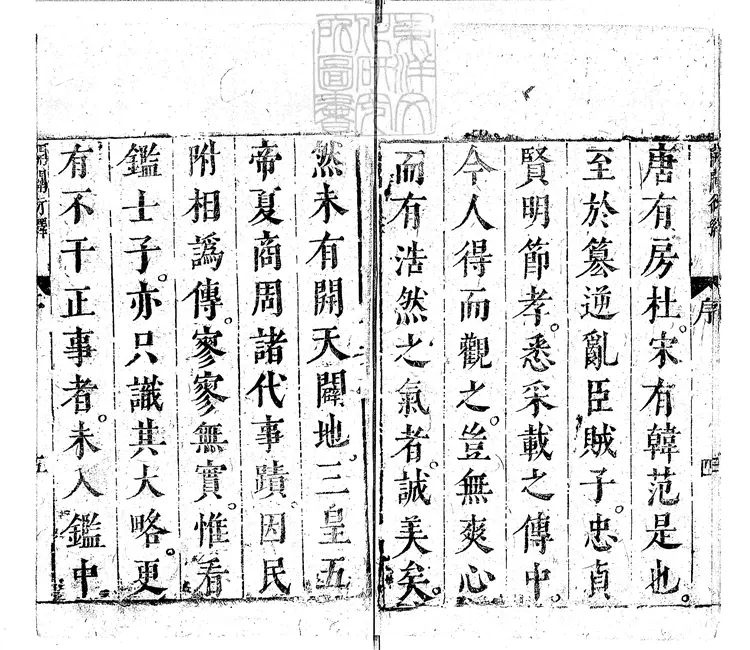 唐有房杜。宋有韓范是也。
至於篡逆亂臣賊子。忠貞
賢明節孝。悉采載之傳中。
今人得而觀之。豈無爽心
而有浩然之氣者。誠美矣。
然未有開天闢地。三皇五
帝夏商周諸代事蹟。因民
附相譌傳。寥寥無實。惟看
鑑士子。亦只識其大略。更
有不干正事者。未入鑑中
開闢衍繹
序
四
開闢衍繹
五